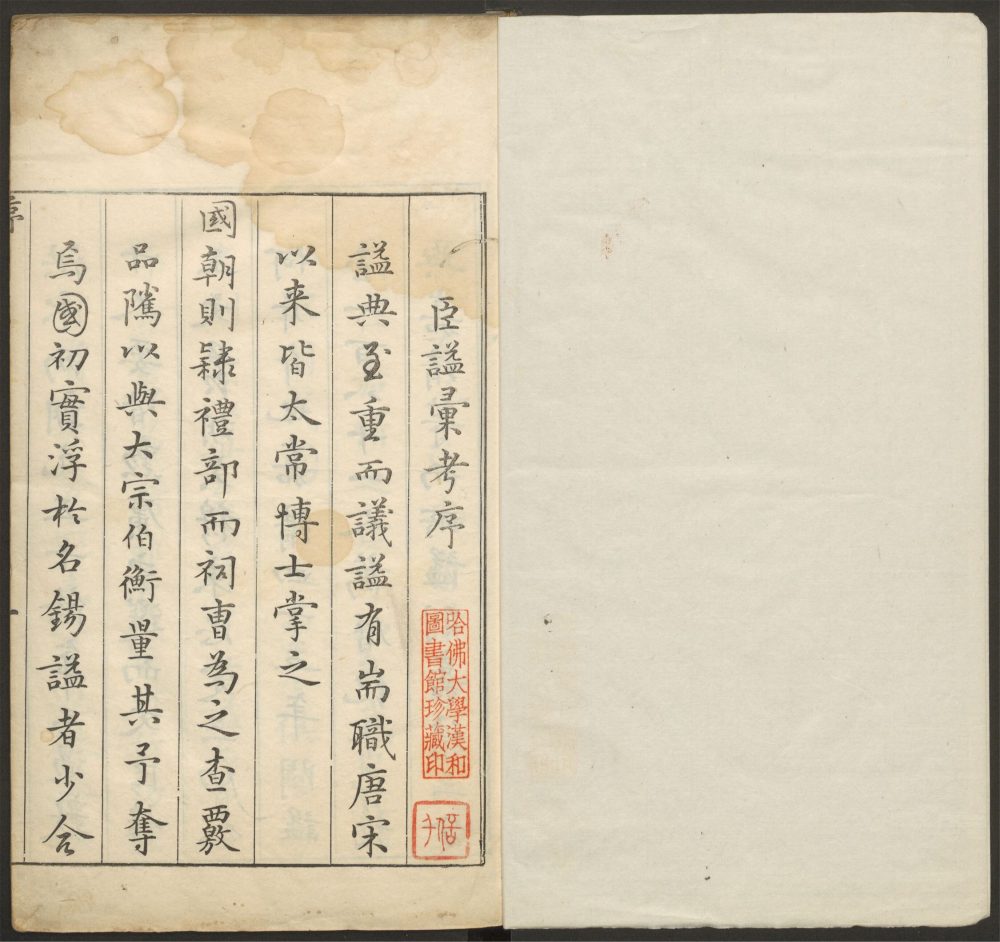 臣諡彙考序
諡典至重而議諡有耑職唐宋
以来皆太常博士掌之
國朝則隸禮部而祠曹為之查覈
品隲以與大宗伯衡量其予奪
焉國初實浮於名錫諡者少合
序
哈佛大學漢和
圖書館珍藏印